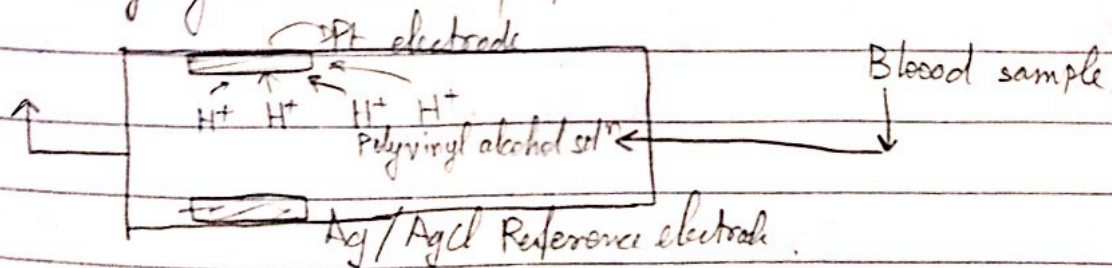 Pt electrode
Blood sample
H+ H+ H+ H+
Polyvinyl alcohol solⁿ
Ag/AgCl Reference electrode.